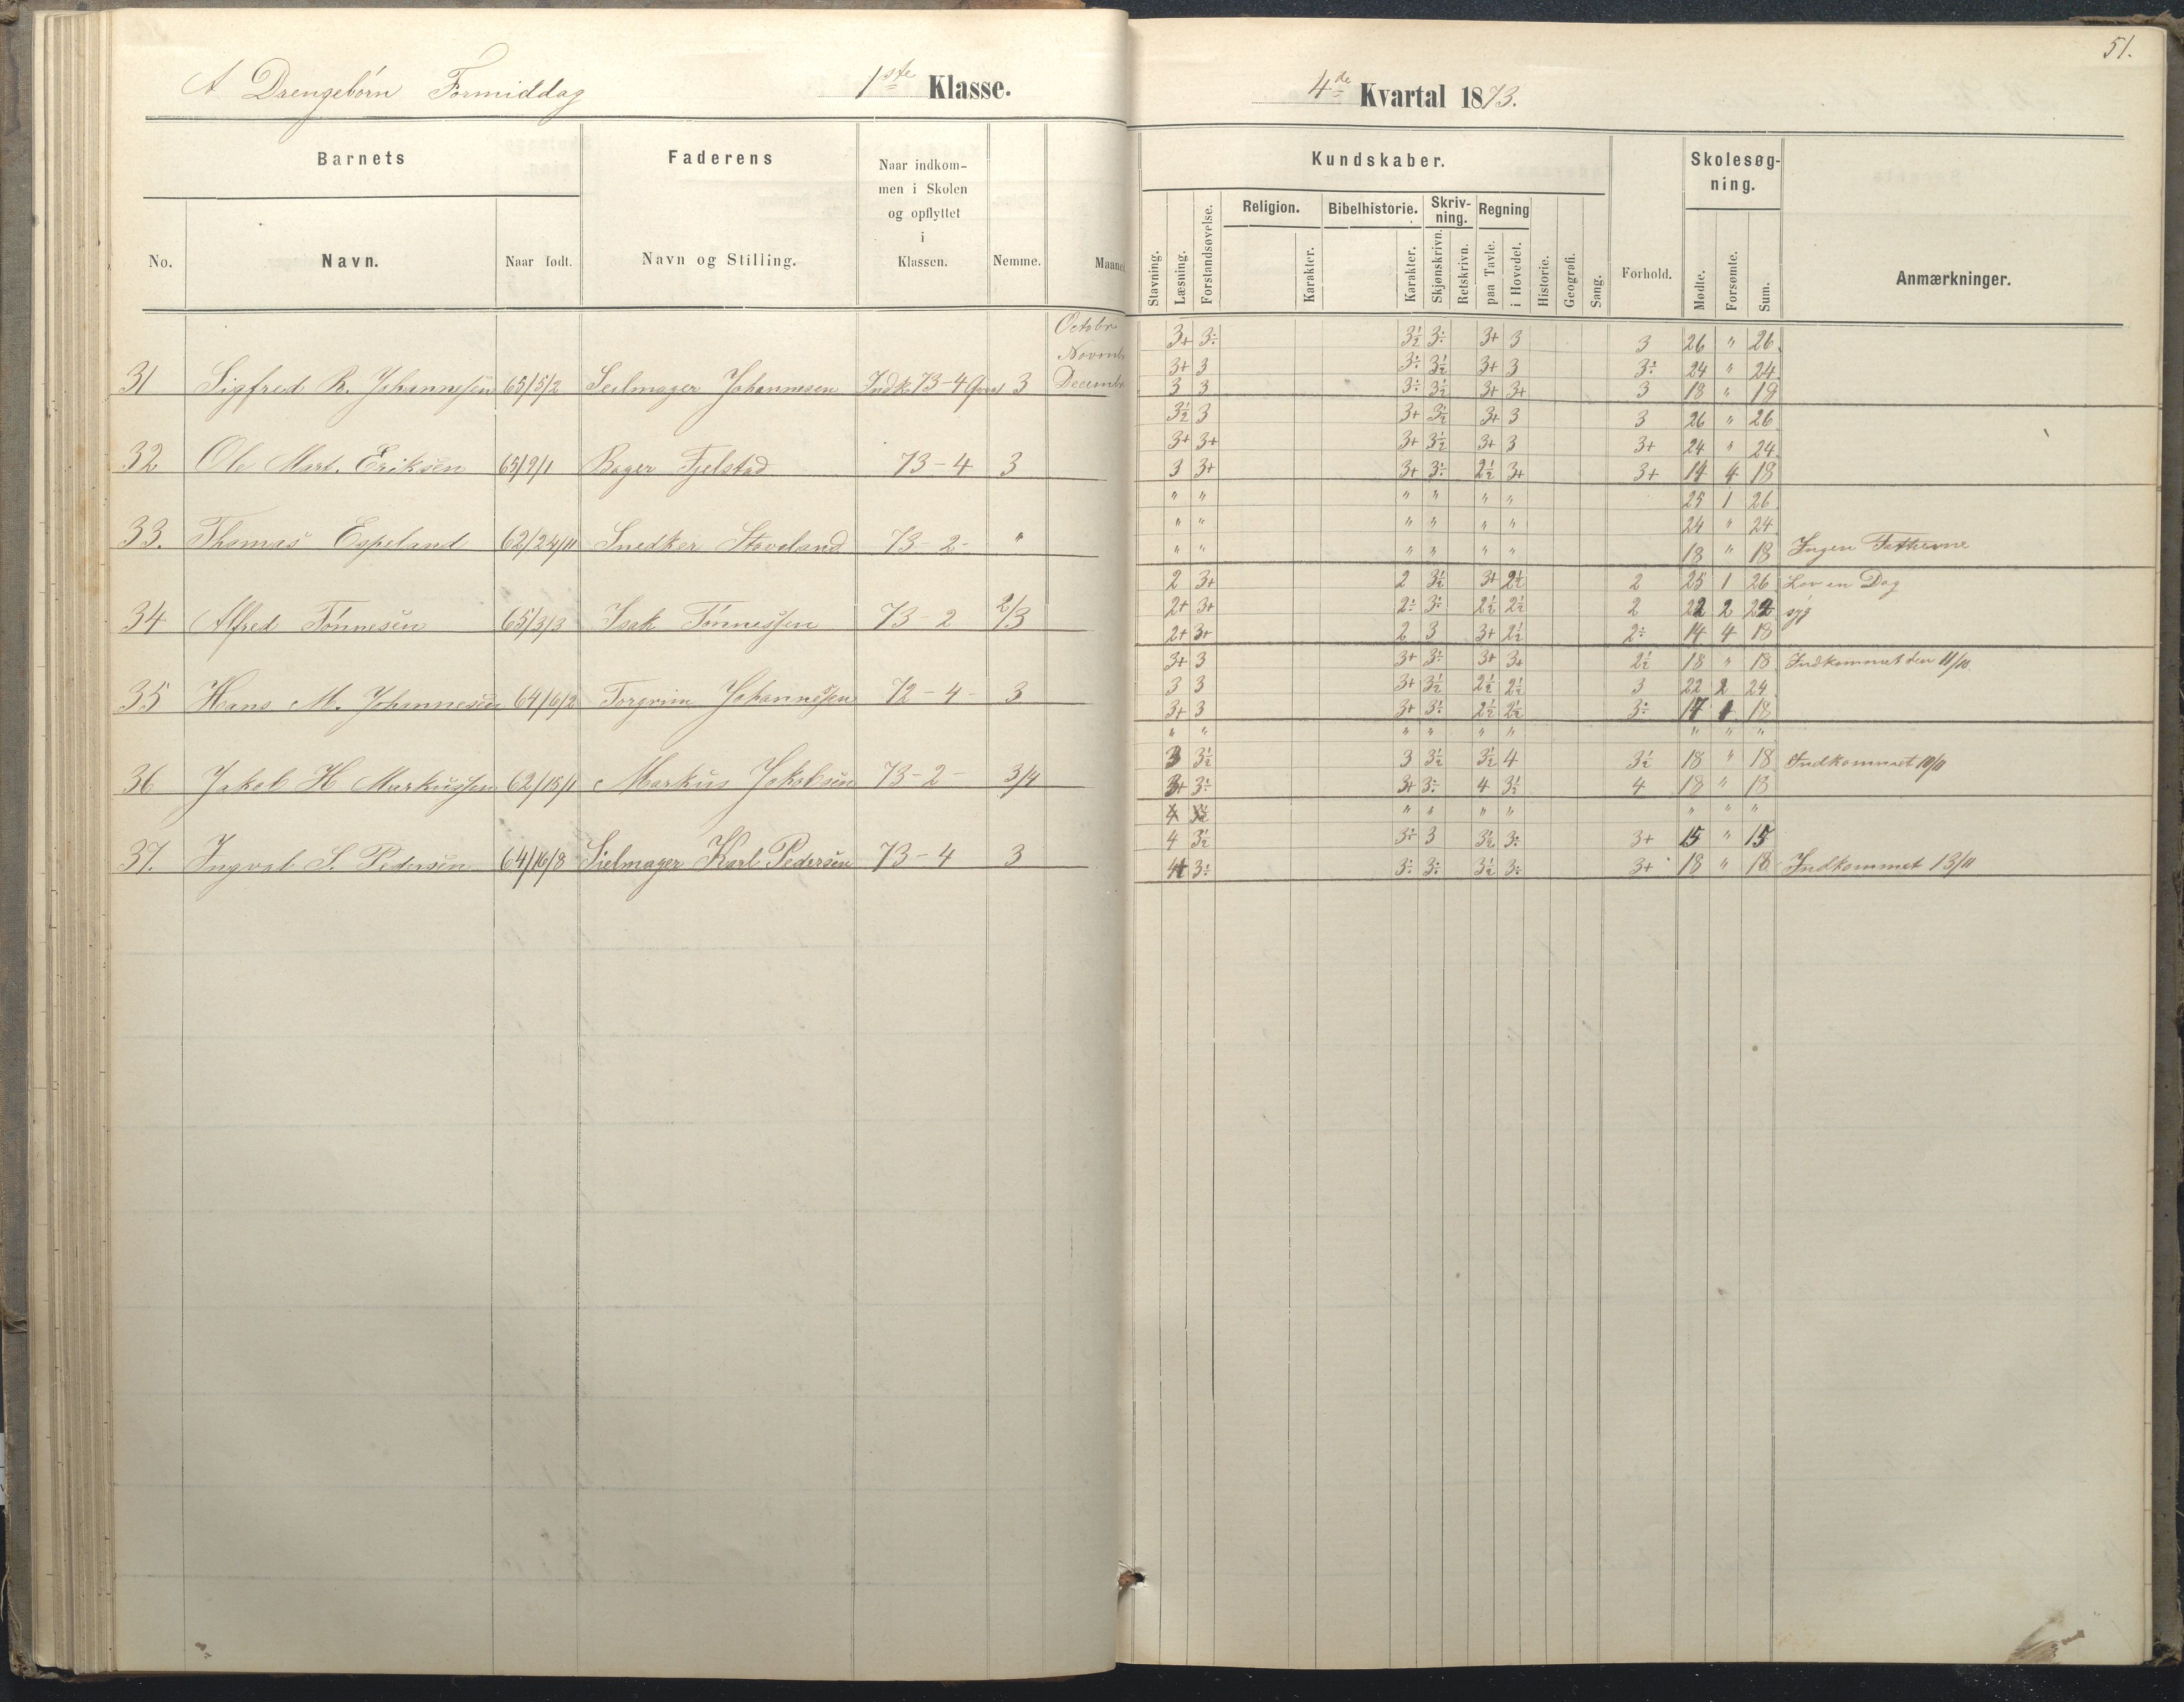 A Drengebørn Formiddag 1ste Klasse.
Barnets Faderens Naar indkom-
men i Skolen
og opflyttet
i
Klassen.
No. Navn. Naar født. Navn og Stilling. Nemme. Maaned
Octobr
Novemb
31 Sigfred R. Johannesen 65/5/2 Seilmager Johannesen Indk 73-4 3 Decemb
32 Ole Mart. Eriksen 65/9/1 Bager Fjelstad 73-4 3
33. Thomas Espeland 62/24/11 Snedker Stoveland 73-2- "
34 Alfred Tönnesen 65/3/3 Isak Tönnessen 73-2 2/3
35 Hans M. Johannesen 64/6/2 Torgrim Johannessen 72-4- 3
36 Jakob H Markussen 62/15/1 Markus Jakobsen 73-2- 3/4
37. Ingval S. Pedersen 64/16/8 Sielmager Karl Pedersen 73-4 3
51.
4de Kvartal 1873.
Kundskaber. Skolesøg-
ning.
Religion. Bibelhistorie. Skriv-
ning. Regning
Stavning. Læsning. Forstandsøvelse. Karakter. Karakter. Skjønskrivn. Retskrivn. paa Tavle. i Hovedet. Historie. Geografi. Sang. Forhold. Mødte. Forsømte. Sum. Anmærkninger.
3+ 3÷ 3½ 3÷ 3+ 3 3 26 " 26
3+ 3 3÷ 3½ 3+ 3 3÷ 24 " 24
3 3 3÷ 3½ 3+ 3+ 3 18 " 18
3½ 3 3+ 3½ 3+ 3 3 26 " 26
3+ 3+ 3+ 3½ 3+ 3 3+ 24 " 24
3 3+ 3+ 3÷ 2½ 3+ 3+ 14 4 18
" " " " " " 25 1 26
" " " " " " 24 " 24
" " " " " " 18 " 18 Ingen
2 3+ 2 3½ 3+ 2½ 2 25 1 26 Lov en Dag
2+ 3+ 2÷ 3÷ 2½ 2½ 2 22 2 24 syg
2+ 3+ 2 3 3+ 2½ 2÷ 14 4 18
3+ 3 3+ 3÷ 3+ 3+ 2½ 18 " 18 Indkommet den 11/10
3 3 3+ 3½ 2½ 2½ 3 22 2 24
3+ 3 3+ 3÷ 2½ 2½ 3÷ 17 1 18
" " " " " " " " "
3 3½ 3 3½ 3½ 4 3½ 18 " 18 Indkommet 10/11
3+ 3÷ 3+ 3÷ 4 3½ 4 18 " 18
" " " " " " "
4 3½ 3÷ 3 3½ 3÷ 3+ 15 " 15
4+ 3÷ 3÷ 3÷ 3½ 3÷ 3+ 18 " 18 Indkommet 13/11